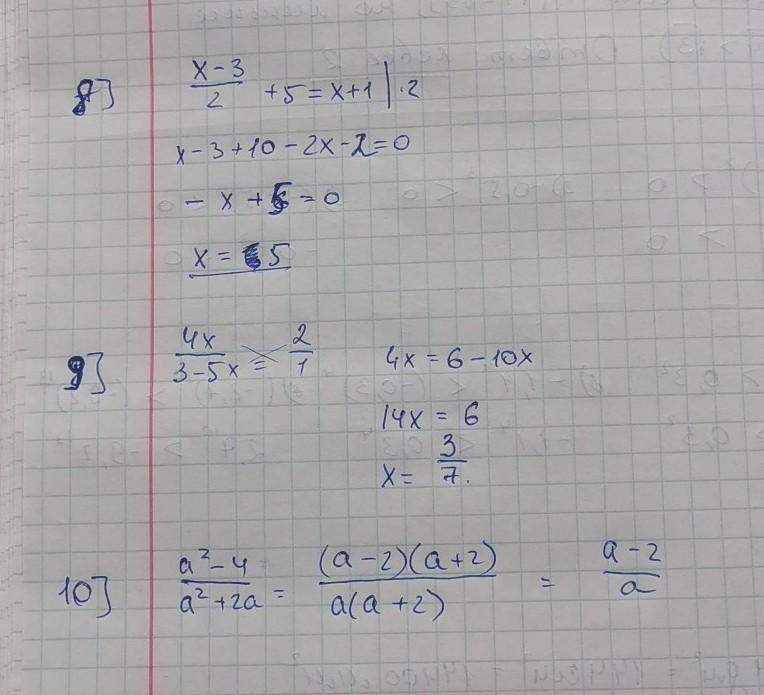 8] (x-3)/2 + 5 = x+1 | ·2
x - 3 + 10 - 2x - 2 = 0
- x + 5 = 0
x = 5
9] 4x/(3-5x) = 2/1
4x = 6 - 10x
14x = 6
x = 3/7.
10] (a²-4)/(a²+2a) = ((a-2)(a+2))/(a(a+2)) = (a-2)/a